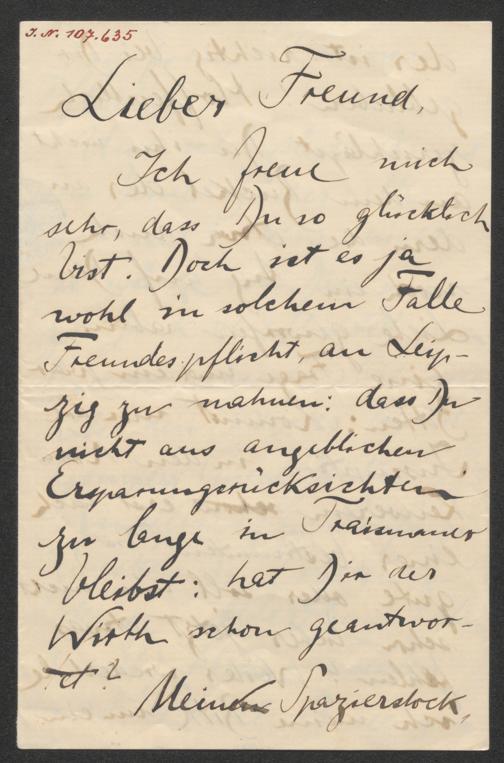 I. N. 107.635
Lieber Freund,
Ich freue mich
sehr, dass Du so glücklich
bist. Doch ist es ja
wohl in solchem Falle
Freundespflicht, an Leip-
zig zu mahnen: dass Du
nicht aus angeblichen
Ersparungsrücksichten
zu lange in Traismauer
bleibst: hat Dir der
Wirth schon geantwor-
tet?
Meinen Spazierstock,